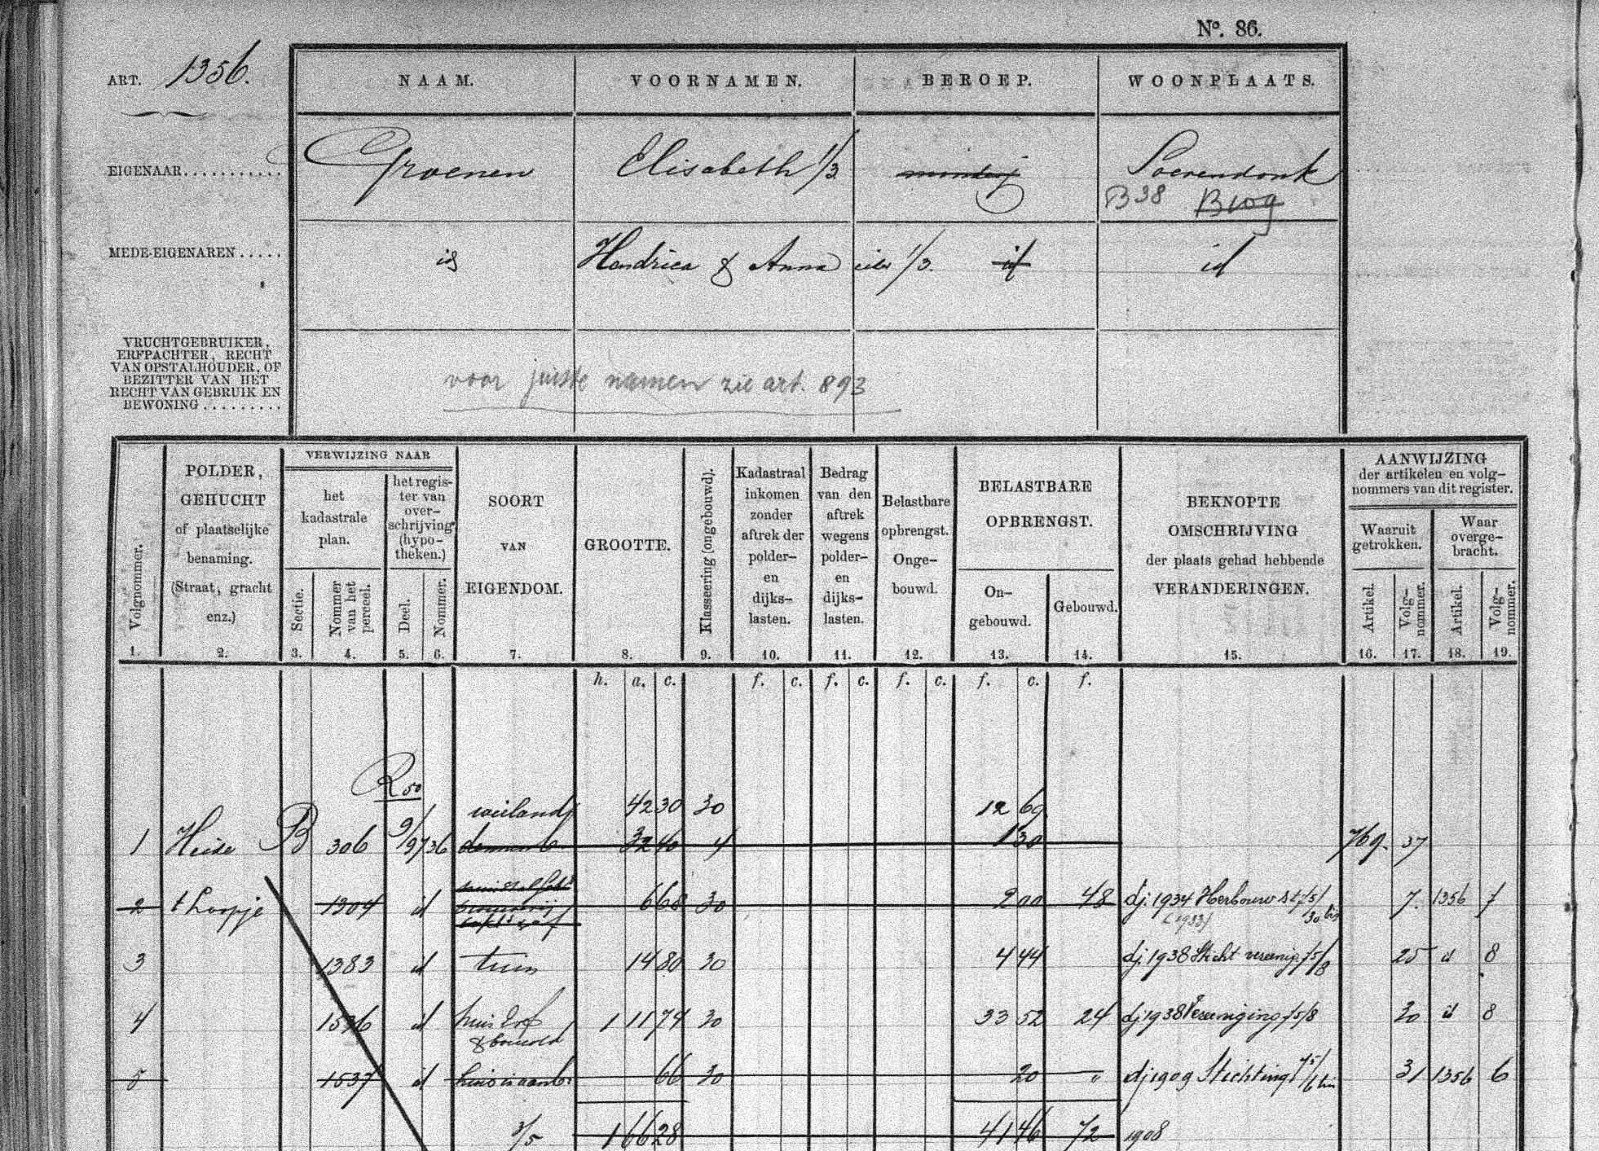 Nº. 86.
ART. 1356.
NAAM. VOORNAMEN. BEROEP. WOONPLAATS.
EIGENAAR........... Groenen Elisabeth 1/3 Soerendonk
B38 Brog
MEDE-EIGENAREN..... id Hendrica & Anna ieder 1/3. id id
VRUCHTGEBRUIKER,
ERFPACHTER, RECHT
VAN OPSTALHOUDER, OF
BEZITTER VAN HET
RECHT VAN GEBRUIK EN
BEWONING.........
voor juiste namen zie art. 893
Volgnommer.
1.
POLDER,
GEHUCHT
of plaatselijke
benaming.
(Straat, gracht
enz.)
2.
VERWIJZING NAAR
het
kadastrale
plan.
Sectie.
3.
Nommer
van het
perceel.
4.
het regis-
ter van
over-
schrijving
(hypo-
theken.)
Deel.
5.
Nommer.
6.
SOORT
VAN
EIGENDOM.
7.
GROOTTE.
8.
Klasseering (ongebouwd).
9.
Kadastraal
inkomen
zonder
aftrek der
polder-
en
dijks-
lasten.
10.
Bedrag
van den
aftrek
wegens
polder-
en
dijks-
lasten.
11.
Belastbare
opbrengst.
Onge-
bouwd.
12.
BELASTBARE
OPBRENGST.
On-
gebouwd.
13.
Gebouwd.
14.
BEKNOPTE
OMSCHRIJVING
der plaats gehad hebbende
VERANDERINGEN.
15.
AANWIJZING
der artikelen en volg-
nommers van dit register.
Waaruit
getrokken.
Artikel.
16.
Volg-
nommer.
17.
Waar
overge-
bracht.
Artikel.
18.
Volg-
nommer.
19.
h. a. c. f. c. f. c. f. c. f. c. f.
R 50
weiland 42 30 30 12 69
1 Heide B 306 9/97 36 32 40 4 1 30 769. 37
2 t Loopje 1304 id 6 68 30 2 00 48 dj. 1934 Herbouw 7. 1356 7
(1933)
3 1383 id tuin 14 80 30 4 44 dj. 1938 Sticht vereenig 75/8 25 id 8
4 1536 id huis Erf 1 11 74 30 33 52 24 dj 1938 Vereeniging 75/8 30 id 8
& bouwld
5 1537 id 66 30 20 dj 1909 Stichting 31 1356 6
1 66 28 41 46 72 1908